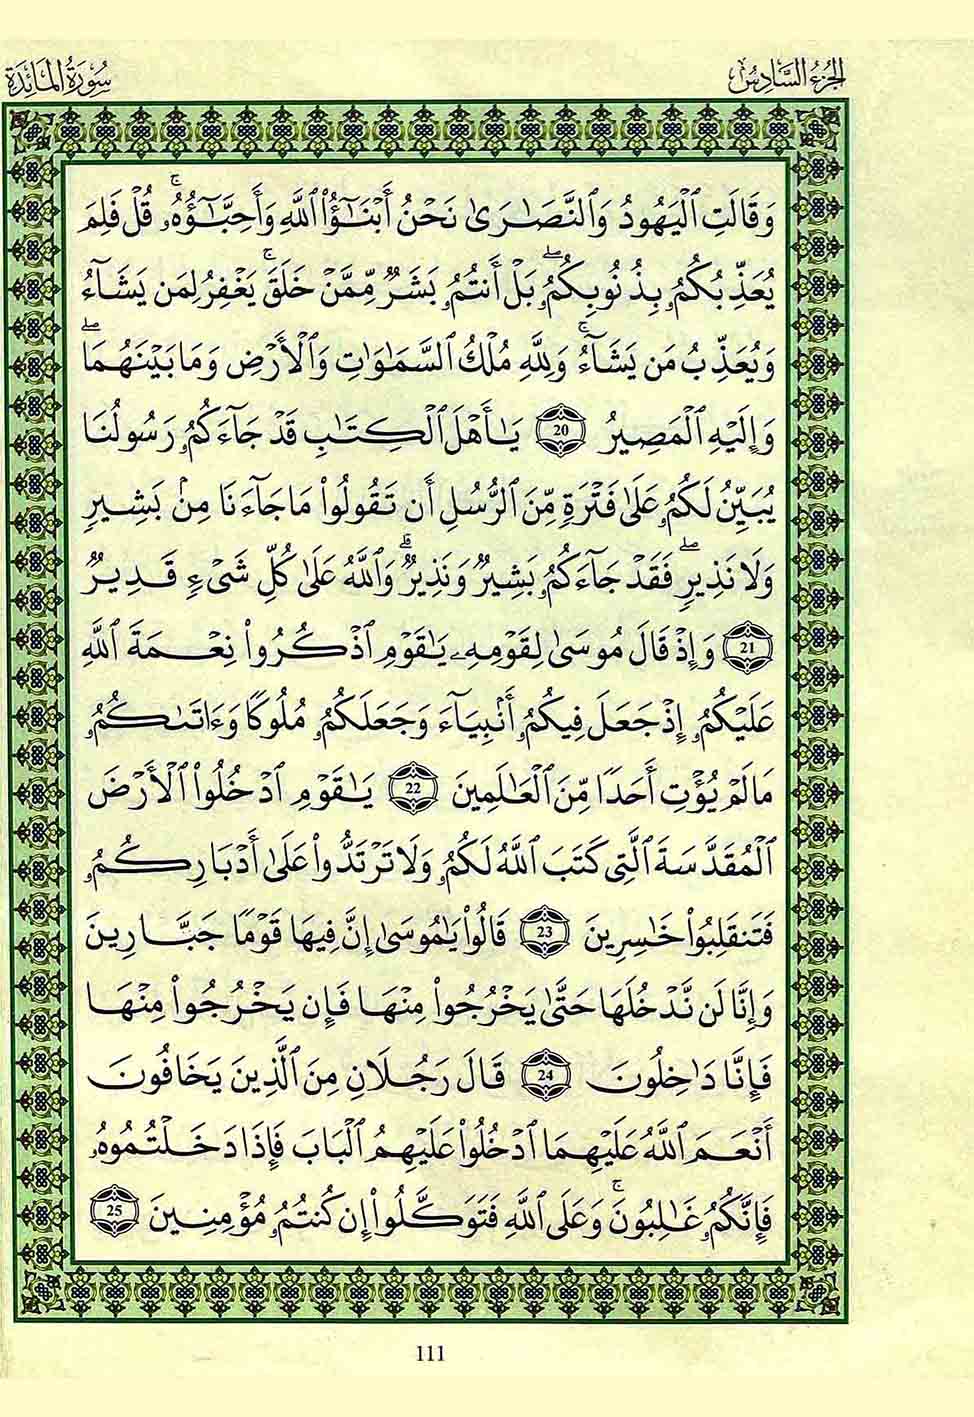 الجزء السادس
سورة المائدة
وَقَالَتِ ٱلۡيَهُودُ وَٱلنَّصَٰرَىٰ نَحۡنُ أَبۡنَٰٓؤُاْ ٱللَّهِ وَأَحِبَّٰٓؤُهُۥۚ قُلۡ فَلِمَ
يُعَذِّبُكُمُۥ بِذُنُوبِكُمُۥۖ بَلۡ أَنتُمُۥ بَشَرٌ مِّمَّنۡ خَلَقَۚ يَغۡفِرُ لِمَن يَشَآءُ
وَيُعَذِّبُ مَن يَشَآءُۚ وَلِلَّهِ مُلۡكُ ٱلسَّمَٰوَٰتِ وَٱلۡأَرۡضِ وَمَا بَيۡنَهُمَاۖ
وَإِلَيۡهِ ٱلۡمَصِيرُ 20 يَٰٓأَهۡلَ ٱلۡكِتَٰبِ قَدۡ جَآءَكُمُۥ رَسُولُنَا
يُبَيِّنُ لَكُمُۥ عَلَىٰ فَتۡرَةٍ مِّنَ ٱلرُّسُلِ أَن تَقُولُواْ مَا جَآءَنَا مِنۢ بَشِيرٍ
وَلَا نَذِيرٍۖ فَقَدۡ جَآءَكُمُۥ بَشِيرٌ وَنَذِيرٌۗ وَٱللَّهُ عَلَىٰ كُلِّ شَيۡءٍ قَدِيرٌ
21 وَإِذۡ قَالَ مُوسَىٰ لِقَوۡمِهِۦ يَٰقَوۡمِ ٱذۡكُرُواْ نِعۡمَةَ ٱللَّهِ
عَلَيۡكُمُۥ إِذۡ جَعَلَ فِيكُمُۥ أَنۢبِيَآءَ وَجَعَلَكُمُۥ مُلُوكًا وَءَاتَىٰكُمُۥ
مَا لَمۡ يُؤۡتِ أَحَدًا مِّنَ ٱلۡعَٰلَمِينَ 22 يَٰقَوۡمِ ٱدۡخُلُواْ ٱلۡأَرۡضَ
ٱلۡمُقَدَّسَةَ ٱلَّتِي كَتَبَ ٱللَّهُ لَكُمُۥ وَلَا تَرۡتَدُّواْ عَلَىٰٓ أَدۡبَارِكُمُۥ
فَتَنقَلِبُواْ خَٰسِرِينَ 23 قَالُواْ يَٰمُوسَىٰٓ إِنَّ فِيهَا قَوۡمًا جَبَّارِينَ
وَإِنَّا لَن نَّدۡخُلَهَا حَتَّىٰ يَخۡرُجُواْ مِنۡهَا فَإِن يَخۡرُجُواْ مِنۡهَا
فَإِنَّا دَٰخِلُونَ 24 قَالَ رَجُلَانِ مِنَ ٱلَّذِينَ يَخَافُونَ
أَنۡعَمَ ٱللَّهُ عَلَيۡهِمَا ٱدۡخُلُواْ عَلَيۡهِمُ ٱلۡبَابَ فَإِذَا دَخَلۡتُمُوهُ
فَإِنَّكُمُۥ غَٰلِبُونَۚ وَعَلَى ٱللَّهِ فَتَوَكَّلُوٓاْ إِن كُنتُمُۥ مُؤۡمِنِينَ 25
111